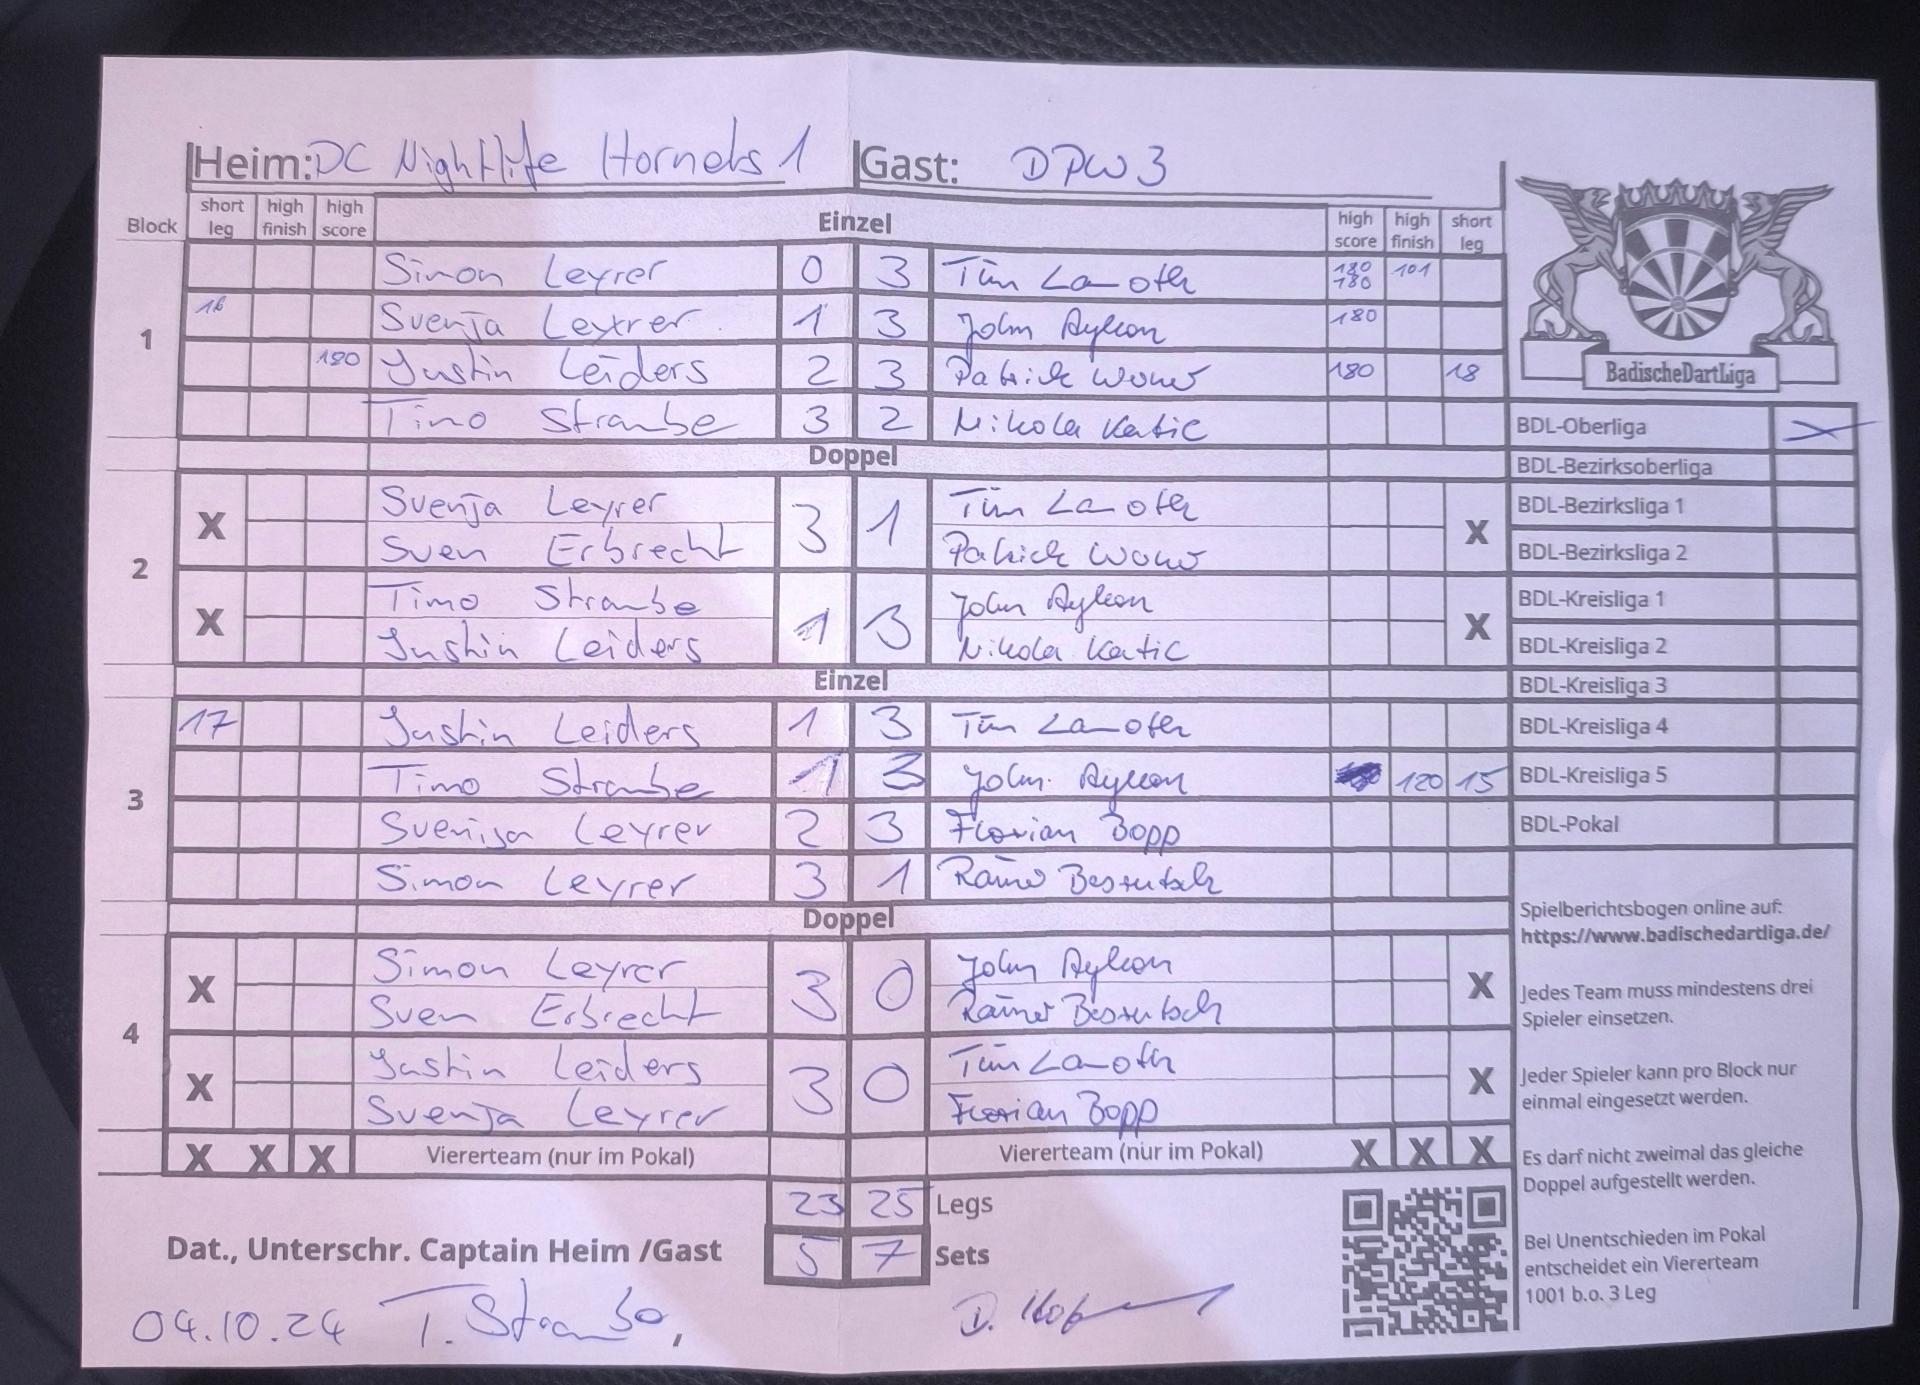 Heim: DC Nightlife Hornets 1 Gast: DPW 3
Block short leg high finish high score Einzel high score high finish short leg
1
Simon Leyrer 0 3 Tim Lamoth 180 180 101
16 Svenja Leyrer 1 3 John Aylon 180
180 Justin Leiders 2 3 Patrick 180 18
Timo Straube 3 2 Nikola Katic
Doppel
2
X Svenja Leyrer 3 1 Tim Lamoth X
Sven Erbrecht Patrick
X Timo Straube 1 3 John Aylon X
Justin Leiders Nikola Katic
Einzel
3
17 Justin Leiders 1 3 Tim Lamoth
Timo Straube 1 3 John Aylon 120 15
Svenija Leyrer 2 3 Florian Bopp
Simon Leyrer 3 1
Doppel
4
X Simon Leyrer 3 0 John Aylon X
Sven Erbrecht
X Justin Leiders 3 0 Tim Lamoth X
Svenja Leyrer Florian Bopp
X X X Viererteam (nur im Pokal) Viererteam (nur im Pokal) X X X
23 25 Legs
5 7 Sets
Dat., Unterschr. Captain Heim /Gast
04.10.24 T. Straube, D.
BadischeDartLiga
BDL-Oberliga X
BDL-Bezirksoberliga
BDL-Bezirksliga 1
BDL-Bezirksliga 2
BDL-Kreisliga 1
BDL-Kreisliga 2
BDL-Kreisliga 3
BDL-Kreisliga 4
BDL-Kreisliga 5
BDL-Pokal
Spielberichtsbogen online auf:
https://www.badischedartliga.de/
Jedes Team muss mindestens drei
Spieler einsetzen.
Jeder Spieler kann pro Block nur
einmal eingesetzt werden.
Es darf nicht zweimal das gleiche
Doppel aufgestellt werden.
Bei Unentschieden im Pokal
entscheidet ein Viererteam
1001 b.o. 3 Leg